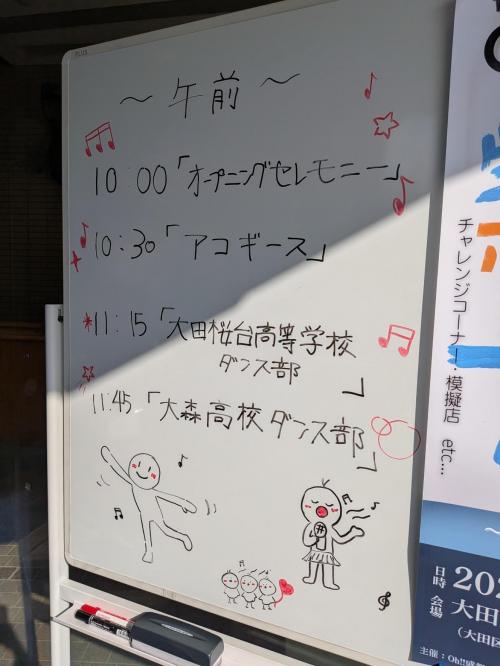 ～午前～
10:00「オープニングセレモニー」
10:30「アコギース」
11:15「大田桜台高等学校
ダンス部」
11:45「大森高校ダンス部」
チャレンジコーナー・模擬店 etc...
日時
会場
大田
(大田区
主催：Oh!!盛